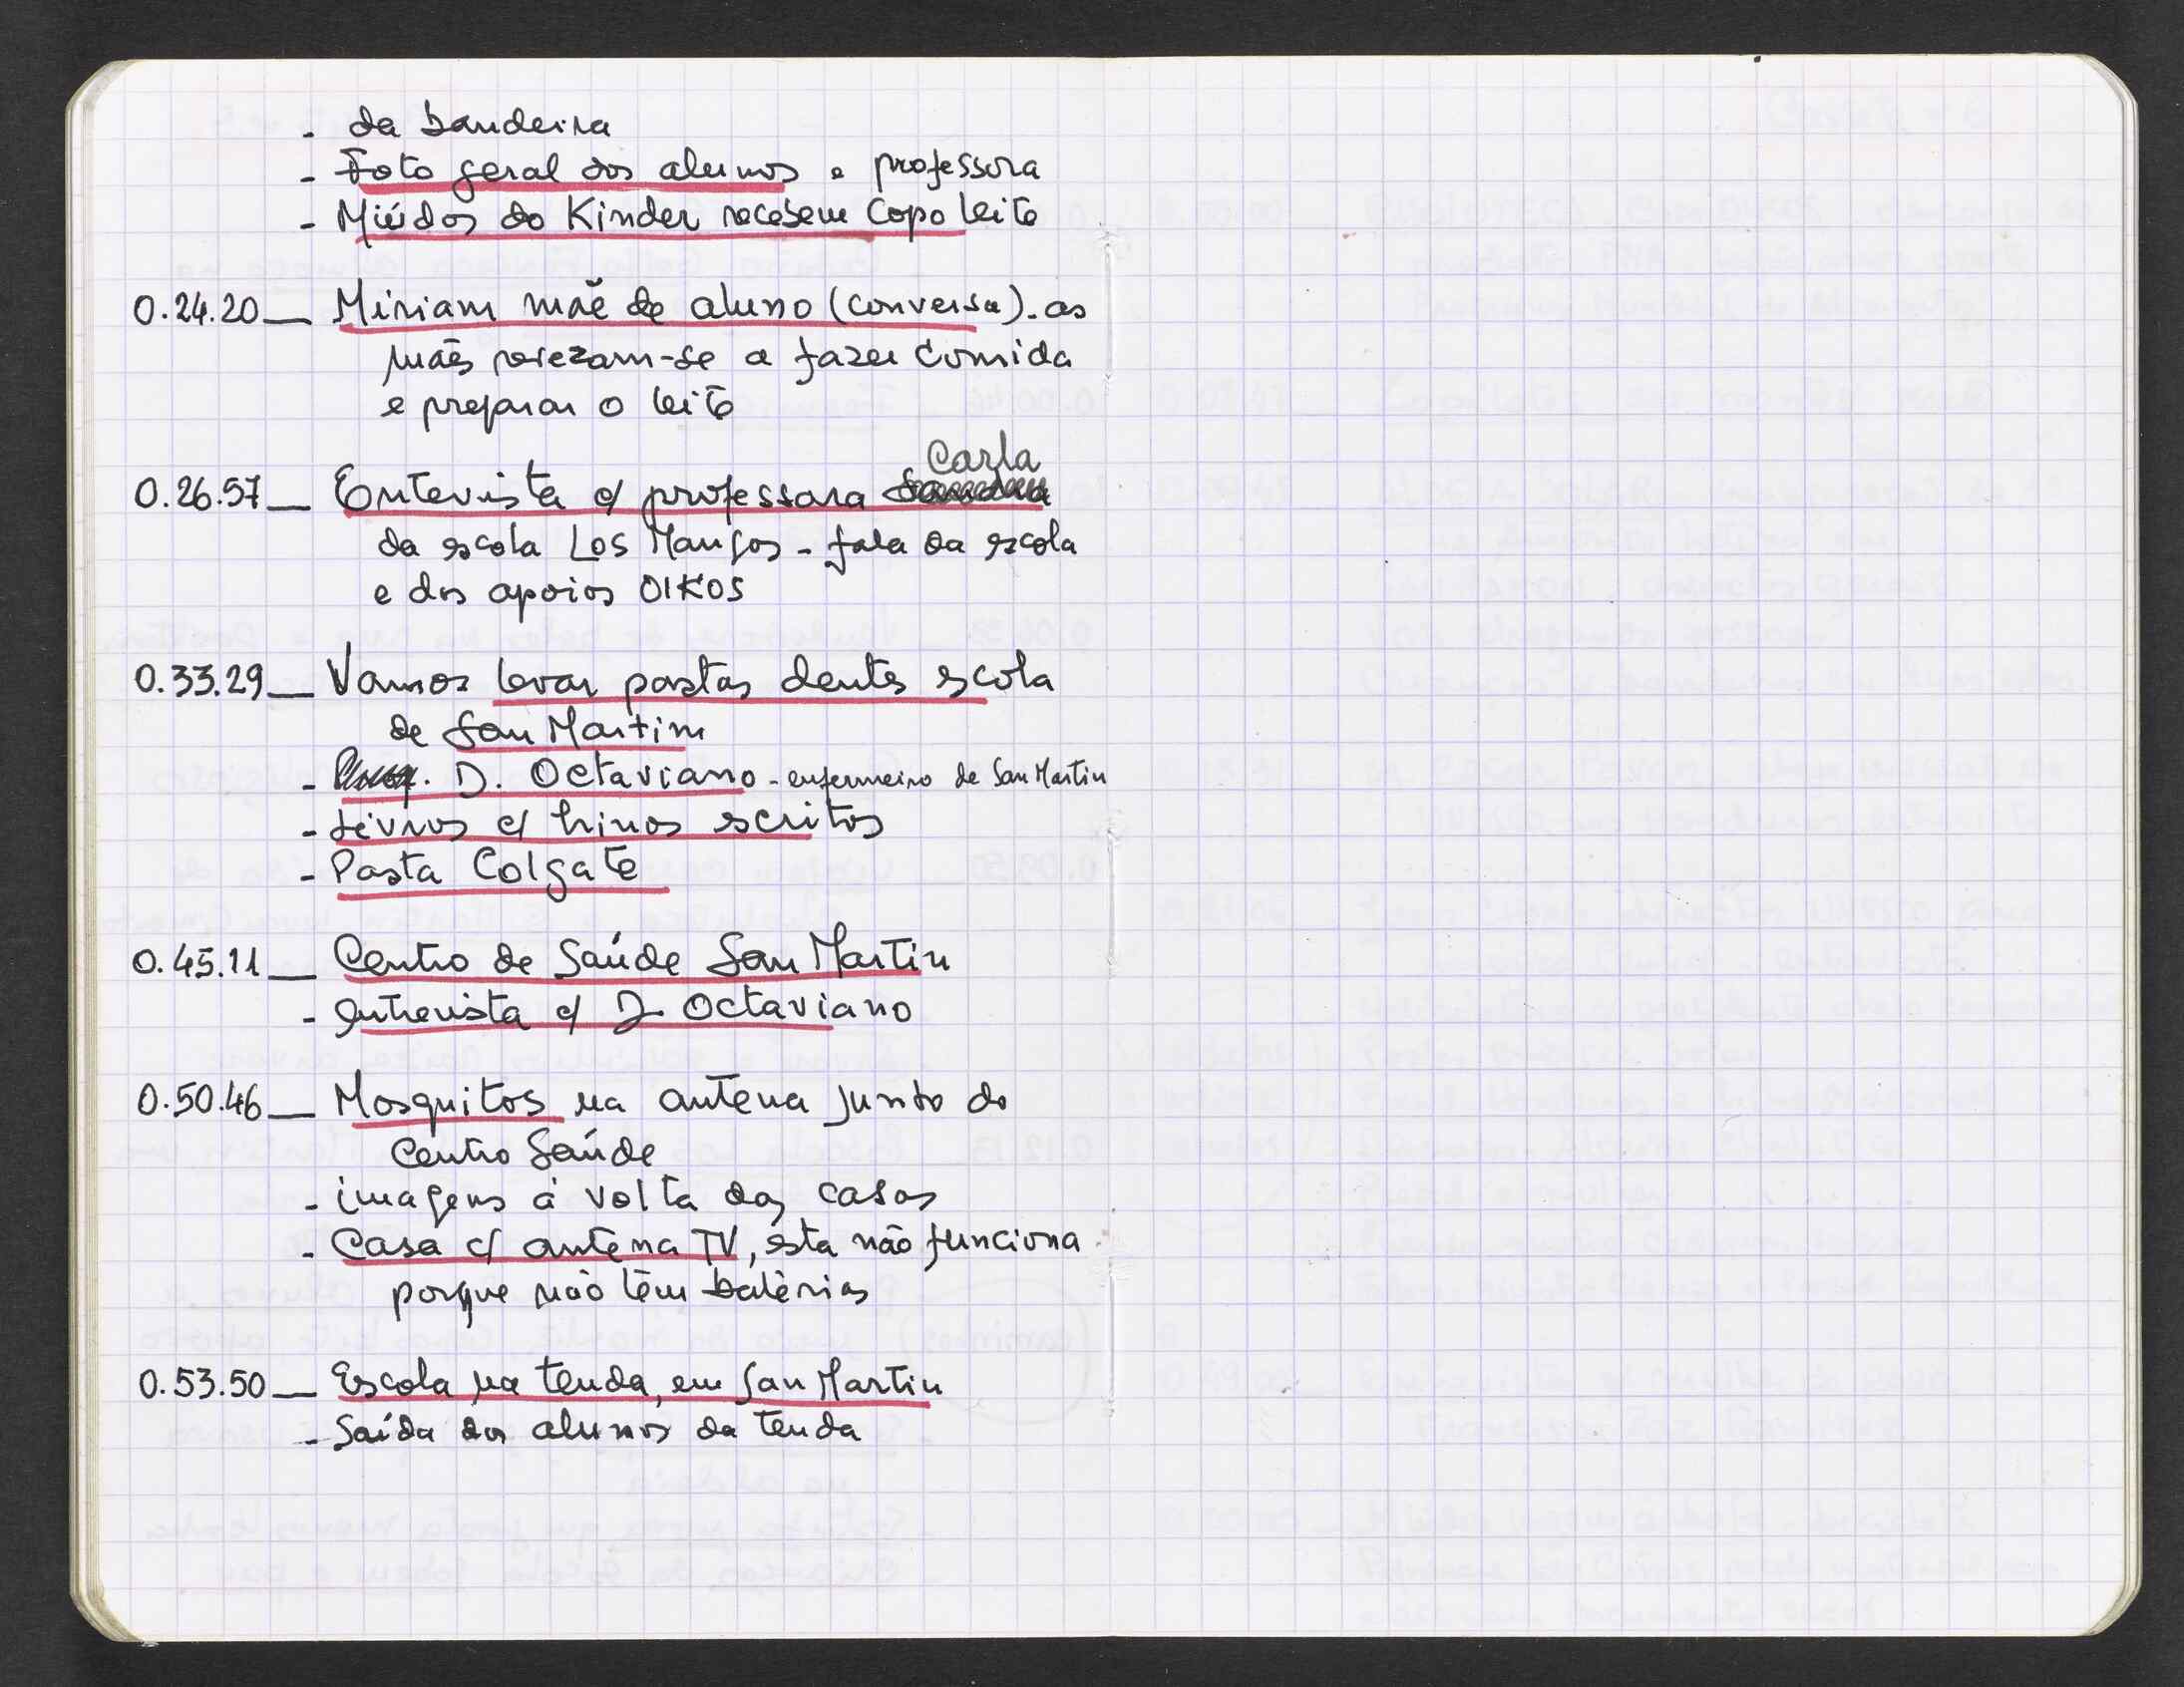 - da bandeira
- Foto geral dos alunos e professora
- Miúdos do Kinder recebem copo leite
0.24.20 — Miriam mãe de aluno (conversa). as
mães revezam-se a fazer comida
e preparar o leite
Carla
0.26.57 — Entevista c/ professora Sandra
da escola Los Mangos - fala da escola
e dos apoios OIKOS
0.33.29 — Vamos levar pastas dentes escola
de San Martim
- D. Octaviano - enfermeiro de San Martin
- Livros c/ hinos escritos
- Pasta Colgate
0.45.11 — Centro de Saúde San Martin
- entrevista c/ D. Octaviano
0.50.46 — Mosquitos na antena junto do
Centro Saúde
- imagens á volta das casas
- Casa c/ antena TV, esta não funciona
porque não têm batérias
0.53.50 — Escola na tenda, em San Martin
- Saída dos alunos da tenda